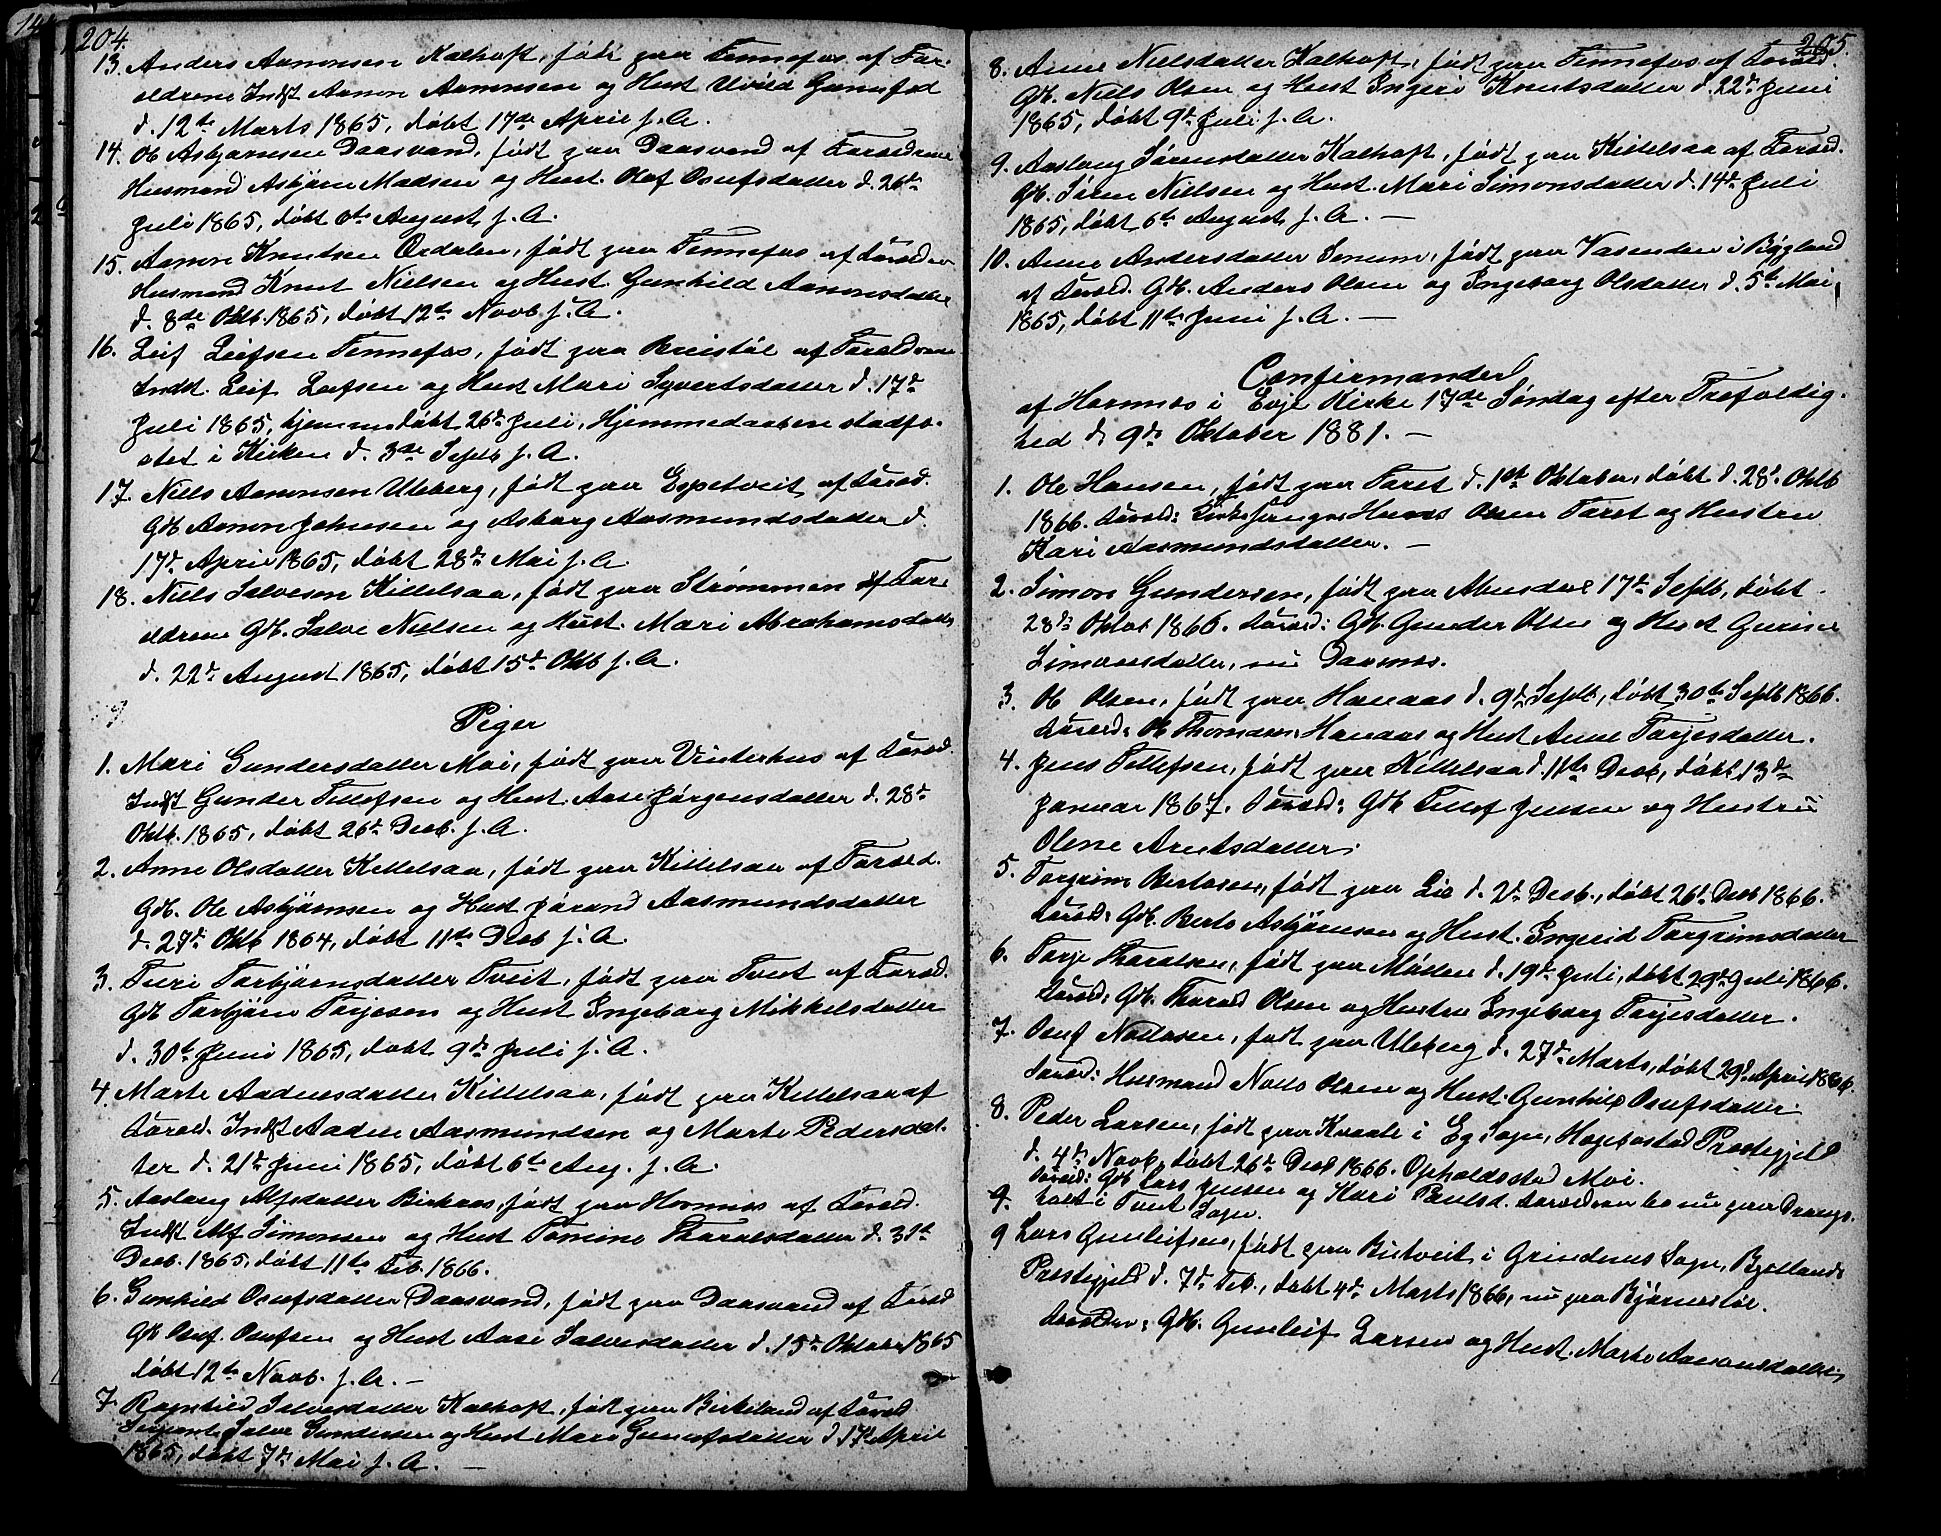 204.
13. Anders Aanonsen Kalhoft, født paa Fennefos af For-
ældrene Indst Aanon Aanonsen og Hust Gunufsd
d. 12te Marts 1865, døbt 17de April s. A.
14. Ole Asbjørnsen Daasvand, født paa Daasvand af Forældrene
Husmand Asbjørn Madsen og Hust. Olaf Osufsdatter d. 26de
Juli 1865, døbt 6te August s. A.
15. Aanon Knutsen Ordalen, født paa Fennefos af Foræld
Husmand Knut Nielsen og Hust. Gunhild Aanonsdatter
d. 8de Oktb. 1865, døbt 12te Novb. s. A.
16. Leif Leifsen Fennefos, født paa Breistøl af Forældrene
Indst. Leif Leifsen og Hust Mari Syvertsdatter d. 17de
Juli 1865, hjemmedøbt 26de Juli, Hjemmedaaben stadfæ-
stet i Kirken d. 3de Septb s. A.
17. Niels Aanonsen Uleberg, født paa Espetveit af Foræld.
Gdb Aanon Johnsen og Asborg Aasmundsdatter d.
17de April 1865, døbt 28de Mai s. A.
18. Niels Salvesen Kittelsaa, født paa Strømmen af For-
ældrene Gdb. Salve Nielsen og Hust. Mari Abrahamsdatter
d. 22de August 1865, døbt 15de Oktb s. A.
Piger
1. Mari Gundersdatter Moi, født paa Vinterhus af Foræld.
Indst Gunder Tellefsen og Hust. Aase Jørgensdatter d. 28de
Oktb. 1865, døbt 26de Decb. s. A.
2. Anne Olsdatter Kittelsaa, født paa Kittelsaa af Foræld.
Gdb. Ole Asbjørnsen og Hust Jorand Aasmundsdatter
d. 27de Oktb 1864, døbt 11te Decb s. A.
3. Turi Torbjørnsdatter Tveit, født paa Tveit af Foræld.
Gdb Torbjørn Torjesen og Hust Ingeborg Mikkelsdatter
d. 30te Juni 1865, døbt 9de Juli s. A.
4. Marte Aadensdatter Kittelsaa, født paa Kittelsaa af
Foræld. Indst Aaden Aasmundsen og Marte Pedersdat-
ter d. 21de Juni 1865, døbt 6te Aug. s. A.
5. Aaslaug Alfsdatter Birkaas, født paa Hornnes af Foræld.
Indst Alf Simonsen og Hust Tomine Thoralsdatter d. 31te
Decb. 1865, døbt 11te Feb. 1866.
6. Gunhild Osufsdatter Daasvand, født paa Daasvand af Foræld
Gdb Osuf Osufsen og Hust Aase Salvesdatter d. 15de Oktober 1865
døbt 12te Novb. s. A. —
7. Ragnhild Salvesdatter Kalhoft, født paa Birkeland af Foræld
Sergeant Salve Gundersen og Hust Mari Gunufsdatter d 17de April
1865, døbt 7de Mai s. A. —
205.
8. Anne Nielsdatter Kalhoft, født paa Fennefos af Foræld.
Gdb. Niels Olsen og Hust Ingeri Knutsdatter d. 22de Juni
1865, døbt 9de Juli s. A.
9. Aaslaug Sørensdatter Kalhoft, født paa Kittelsaa af Foræld.
Gdb. Søren Nielsen og Hust. Mari Simonsdatter d. 14de Juli
1865, døbt 6te August s. A. —
10. Anne Andersdatter Senum, født paa Vasenden i Bygland
af Foræld. Gdb. Anders Olsen og Ingeborg Olsdatter d. 5te Mai
1865, døbt 11te Juni s. A. —
Confirmander
af Hornnes i Evje Kirke 17de Søndag efter Trefoldig-
hed d. 9de Oktober 1881. —
1. Ole Hansen, født paa Faret d. 1ste Oktober, døbt d. 28de Oktb
1866. Foræld: Kirkesanger Hans Olsen Faret og Hustru
Kari Aasmundsdatter. —
2. Simon Gundersen, født paa Abusdal 17de Septb, døbt
28de Oktob 1866. Foræld: Gdb Gunder Olsen og Hust Gurine
Simonsdatter, nu Daasnes.
3. Ole Olsen, født paa Hanaas d. 9de Septb, døbt 30te Septb 1866.
Foræld: Ole Thomasen Hanaas og Hust Anne Torjesdatter.
4. Jens Tellefsen, født paa Kittelsaa d. 11te Decb, døbt 13de
Januar 1867. Foræld: Gdb Tellef Jensen og Hustru
Olene Arntsdatter.
5. Torgrim Bertosen, født paa Lia d. 2de Decb., døbt 26de Decb 1866.
Foræld: Gdb. Berto Asbjørnsen og Hust. Ingerid Torgrimsdatter
6. Torje Thoralsen, født paa Møllen d. 19de Juli, døbt 29de Juli 1866.
Foræld: Gdb. Thorald Olsen og Hustru Ingeborg Torjesdatter.
7. Osuf Notto­sen, født paa Uleberg d. 27de Marts, døbt 29de April 1866.
Foræld: Husmand Notto Olsen og Hust. Gunhild Osufsdatter.
8. Peder Larsen, født paa Kvaale i Eg Sogn, Høgebostad Præstegjeld
d. 4de Novb, døbt 26de Decb 1866. Opholdssted Moi.
Foræld: Gdb Lars Jensen og Kari Paulsd. Forældrene bo nu paa Drangs-
holt i Tveit Sogn.
9 Lars Gunleifsen, født paa i Grindems Sogn, Bjellands
Præstegjeld d. 7de Feb., døbt 4de Marts 1866, nu paa
Forældre: Gdb. Gunleif Larsen og Hust. Marte Aanonsdatter.